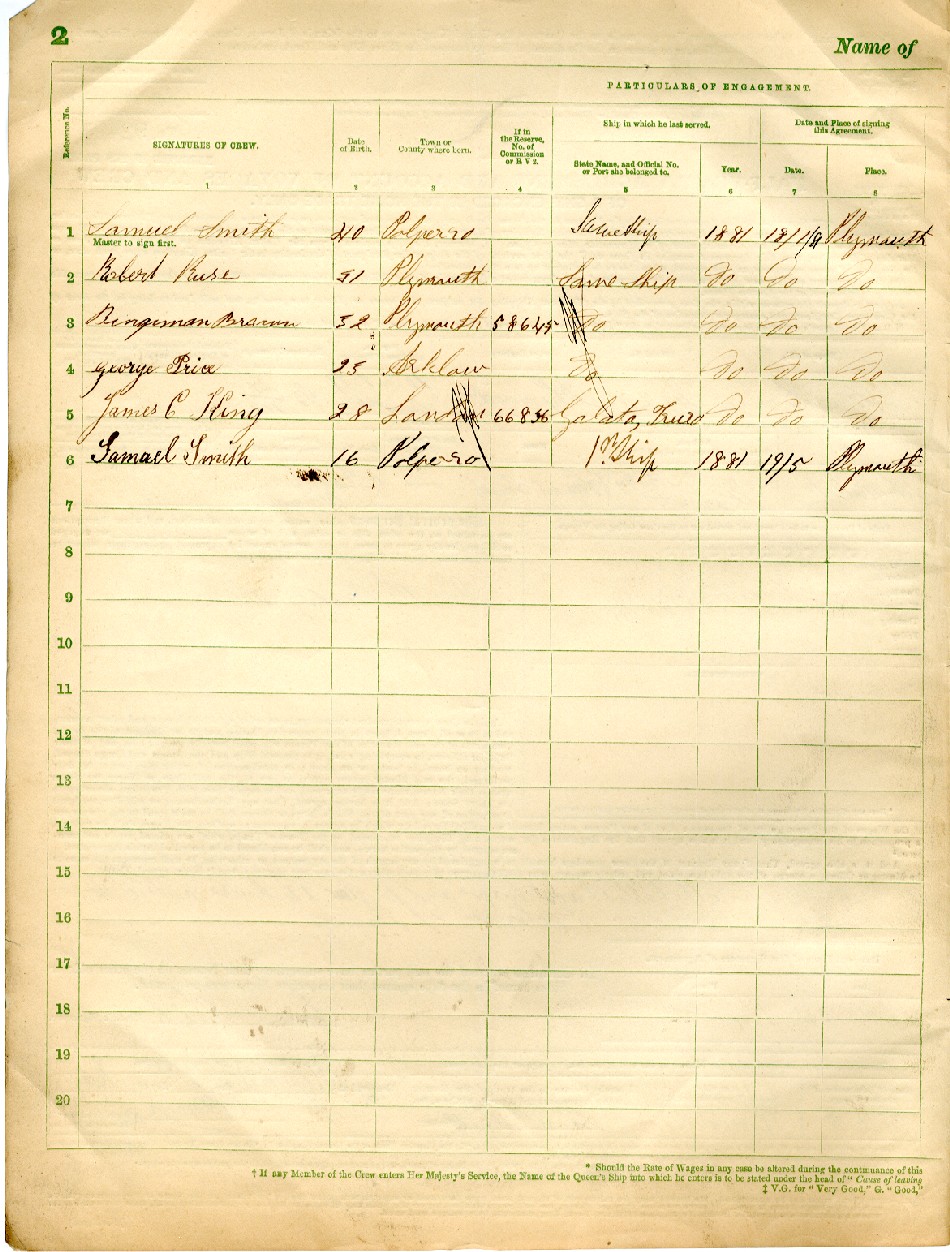 2
Name of
PARTICULARS OF ENGAGEMENT.
Reference No.
SIGNATURES OF CREW.
Date of Birth.
Town or County where born.
If in the Reserve, No. of Commission or R V 2.
Ship in which he last served.
Date and Place of signing this Agreement.
State Name, and Official No. or Port she belonged to.
Year.
Date.
Place.
1 2 3 4 5 6 7 8
1 Samuel Smith 40 Polperro Same Ship 1881 Plymouth
Master to sign first.
2 Robert Ruse 51 Plymouth Same Ship Do Do Do
3 Bengeman Brown 32 Plymouth 58645 Do Do Do Do
4 george Price 25 Arklow Do Do Do Do
5 James C King 28 London 66836 Galatea Truro Do Do Do
6 Samael Smith 16 Polperro 1st Ship 1881 19/5 Plymouth
7
8
9
10
11
12
13
14
15
16
17
18
19
20
* Should the Rate of Wages in any case be altered during the continuance of this
† If any Member of the Crew enters Her Majesty's Service, the Name of the Queen's Ship into which he enters is to be stated under the head of "Cause of leaving
‡ V.G. for "Very Good," G. "Good,"